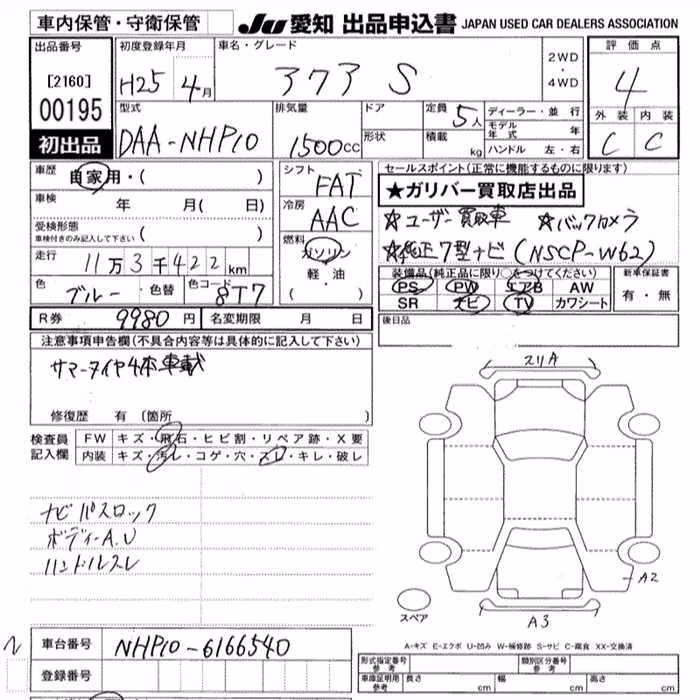 車内保管・守衛保管
JU 愛知 出品申込書 JAPAN USED CAR DEALERS ASSOCIATION
出品番号
[2160]
00195
初出品
初度登録年月
H25年 4月
車名・グレード
アクア S
2WD
・
4WD
評価点
4
外装 内装
C C
型式
DAA-NHP10
排気量
1500cc
ドア
形状
定員
5人
積載
kg
ディーラー・並行
モデル年式 年
ハンドル 左・右
車歴
自家用・( )
車検
年 月( 日)
受検形態
車検付きのみ記入して下さい ( )
走行
11万3千422km
色
ブルー・色替
色コード
8T7
シフト
FAT
冷房
AAC
燃料
ガソリン
軽・油
( )
セールスポイント(正常に機能するものに限ります)
★ガリバー買取店出品
☆ユーザー買取車 ☆バックカメラ
☆純正7型ナビ(NSCP-W62)
装備品(純正品に限り○をつけてください)
PS PW エアB AW
SR ナビ TV カワシート
新車保証書
有・無
後日品
R券 9980円 名変期限 月 日
注意事項申告欄(不具合内容等は具体的に記入して下さい)
サマータイヤ4本車載
修復歴 有(箇所 )
検査員記入欄
FW キズ・飛石・ヒビ割・リペア跡・X要
内装 キズ・汚レ・コゲ・穴・スレ・キレ・破レ
ナビパスロック
ボディーA.U
ハンドルスレ
スリA
A2
A3
スペア
A-キズ E-エクボ U-凹み W-補修跡 S-サビ C-腐食 XX-交換済
車台番号
NHP10-6166540
登録番号
形式指定番号
参考
類別区分番号
参考
車庫証明用
参考
長さ cm 幅 cm 高さ cm